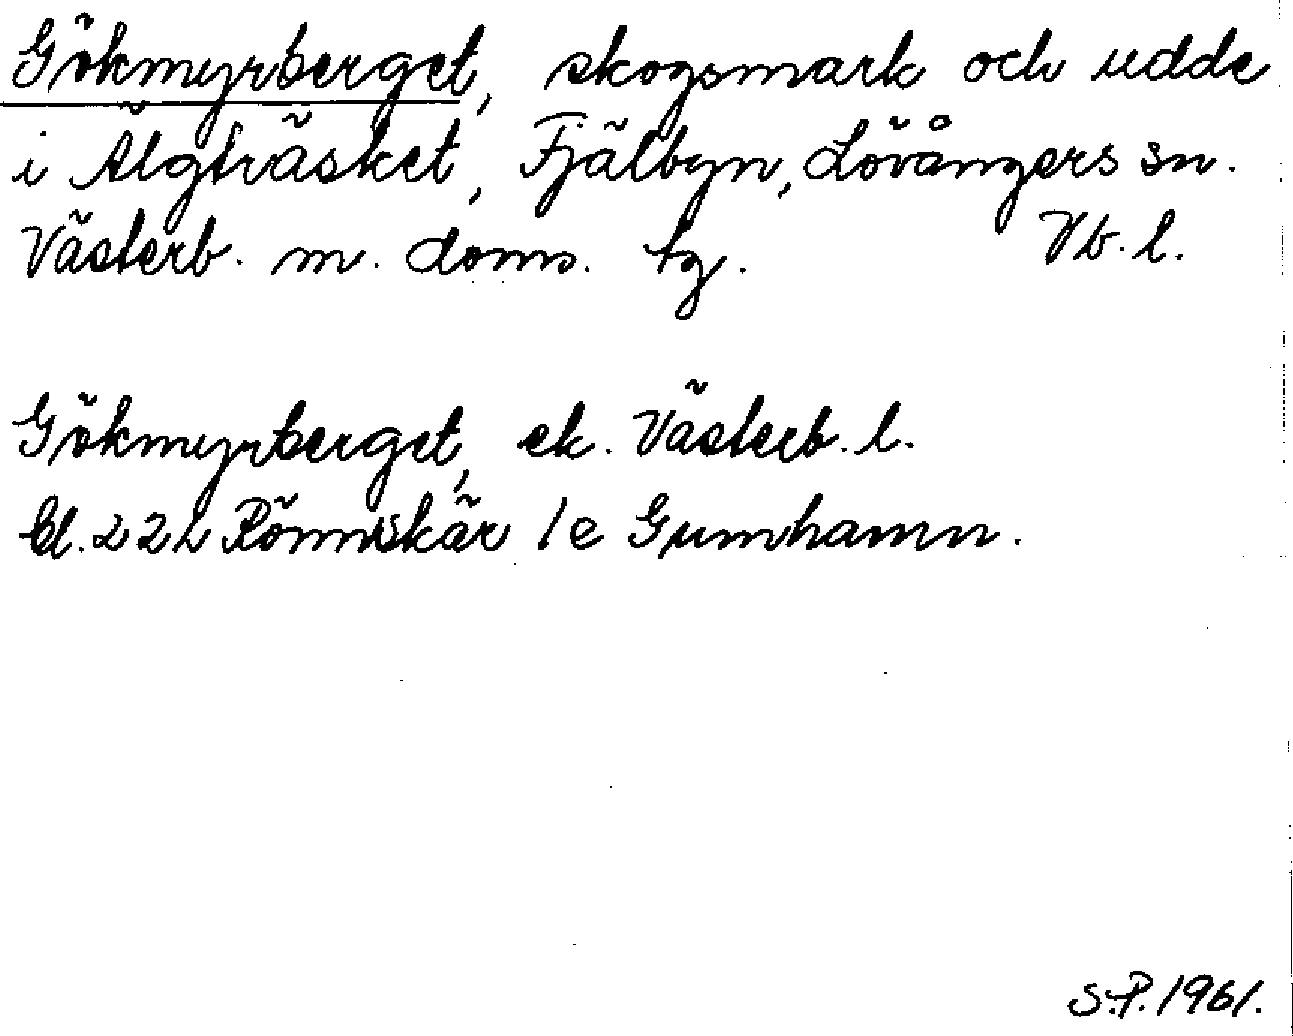 Gökmyrberget, skogsmark och udde
i Älgträsket, Fjälbyn, Lövångers sn.
Västerb. m. doms. tg. Vb. l.
Gökmyrberget, ek. Västerb. l.
bl. 222 Rönnskär 1e Gumhamn.
S.P. 1961.